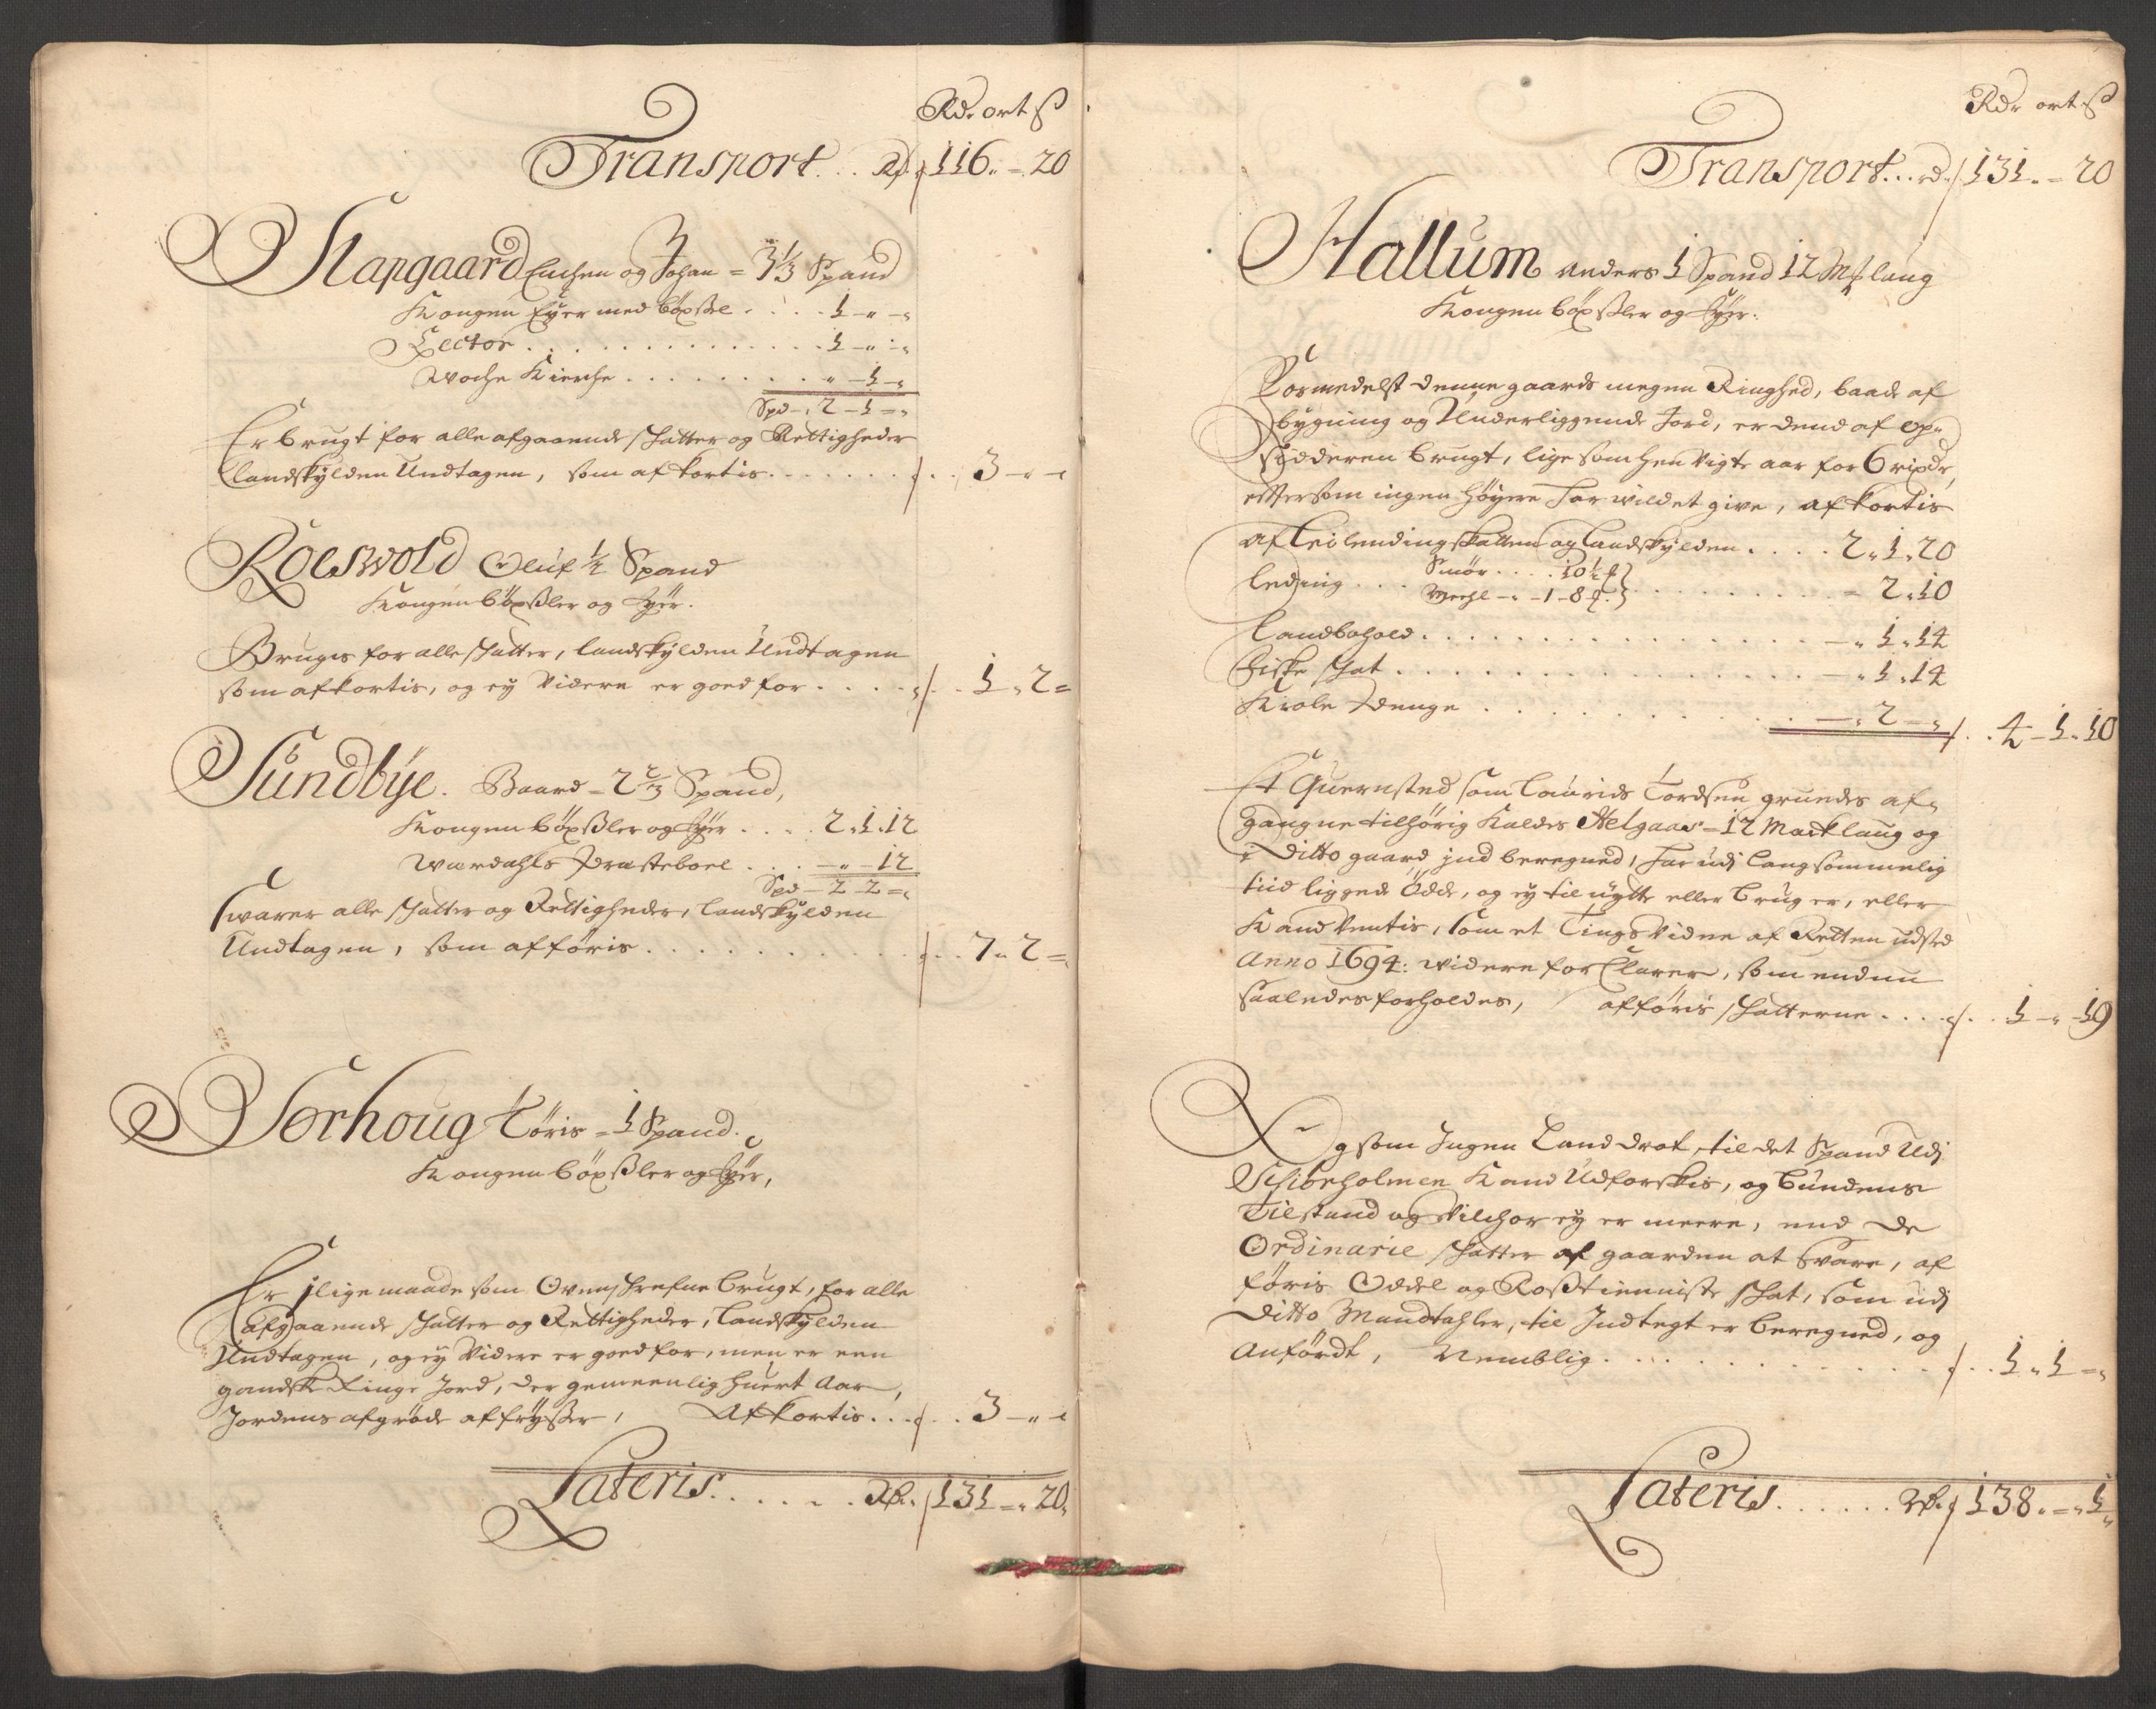 Rdr ort ß
Transport . . . Rdr 116 - „ - 20
Slapgaard Enchen og Johan = 3 1/3 Spand
Kongen Eyer med böxsel . . . . 1 - „ - „
Lector . . . . . . . . . . . . . . 1 - „ - „
Woche Kierche . . . . . . . . „ - 1 - „
Spd - 2 - 1 = „
Er brugt for alle afgaaende skatter og Rettigheder
landskylden Undtagen, som afkortis . . . . . . . 3 - „ - „
Roeswold Oluf 1/2 Spand
Kongen böxsler og Eyer.
Bruges for alle skatter, landskylden Undtagen
som afkortis, og ey Videre er goed for . . . . . 1 „ 2 =
Sundbye. Baard = 2 2/3 Spand,
Kongen böxsler og Eyer . . . . 2 . 1 . 12
Wærdahls Præsteboel . . . - „ - 12
Spd - 2 - 2 = „
Svarer alle skatter og Rettigheder, landskylden
Undtagen, som afföris . . . . . . . . . . . . 7 „ 2 = „
Sorhoug Töris = 1 Spand.
Kongen böxsler og Eyer,
Er ilige maade som Ovenskrefne brugt, for alle
afgaaende skatter og Rettigheder, landskylden
Undtagen, og ey Videre er goed for, men er een
gandske Ringe Jord, der gemeenlig huert Aar,
Jordens afgröde affrÿsser, Afkortis . . . . . 3 - „ - „
Lateris . . . . . . Rdr 131 = „ 20 „
Rdr ort ß
Transport . . . rd. 131 „ = 20
Hallum Anders 1 Spand 12 Mk laug
Kongen böxsler og Eyer.
Formedelst denne gaards megen Ringhed, baade af
bygning og Underliggende Jord, er dend af op„
sidderen brugt, lige som henvigte aar for 6 rixdr,
eftersom ingen höyere har vildet give, afkortis
af Leilendingskatten og Landskylden . . . . 2 „ 1 „ 20
leding . . . Smör . . . . 10 1/2
Meehl - „ - 1 - 8 . . . . . . . . . . - 2 „ 10
Landbohold . . . . . . . . . . . . . . . - „ 1 „ 14
Fiske skat . . . . . . . . . . . . . . . . - „ 1 „ 14
Giole Penge . . . . . . . . . . . . . - „ 2 - „ 4 - 1 „ 10
Et Quernsted som Laurids Tordsen grundes af„
gangne tilhörig Kaldes Helgaas = 12 Marklaug og
i Ditto gaard ind beregned, har udj langsommelig
tiid liggend Ödde, og ey til nytte eller brug er, eller
Kand Ventis, som et Tings Vidne af Retten udsted
Anno 1694: widere forClarer, som endnu
saaledes forholdes, afföris skatterne . . . . 1 - „ - 19
Og som Ingen Landdrot, til det Spand Udj
Schibeholmen Kand Udforskis, og Bundens
Tilstand og Vilchor ey er meere, end De
Ordinarie skatter af gaarden at svare, af
föris Oddel og Rosstienniste skat, som udj
Ditto Mandtahler, til Indtegt er beregned, og
Anfördt, Nemblig . . . . . . . . . . . . . 1 „ 1 = „
Lateris . . . . . . Rdr 138 „ = „ 1 „